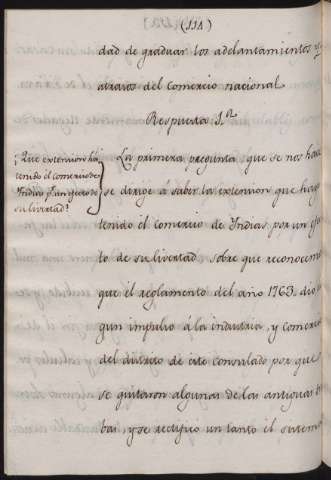 (114)
dad de graduar los adelantamientos, ó
atrasos del Comercio nacional.
Respuesta 1.ª
¿Que extension ha
tenido el comercio de
Indias p.r un efecto de
su livertad?
La primera pregunta que se nos hace
se dirije a saber la extension que haya
tenido el comercio de Indias por un efec
to de su livertad, sobre que reconocemos
que el reglamento del año 1763. dio
gun impulso á la industria, y comercio
del distrito de este consulado por que
se quitaron algunas de las antiguas tra
bas, y se rectificó un tanto el sistema